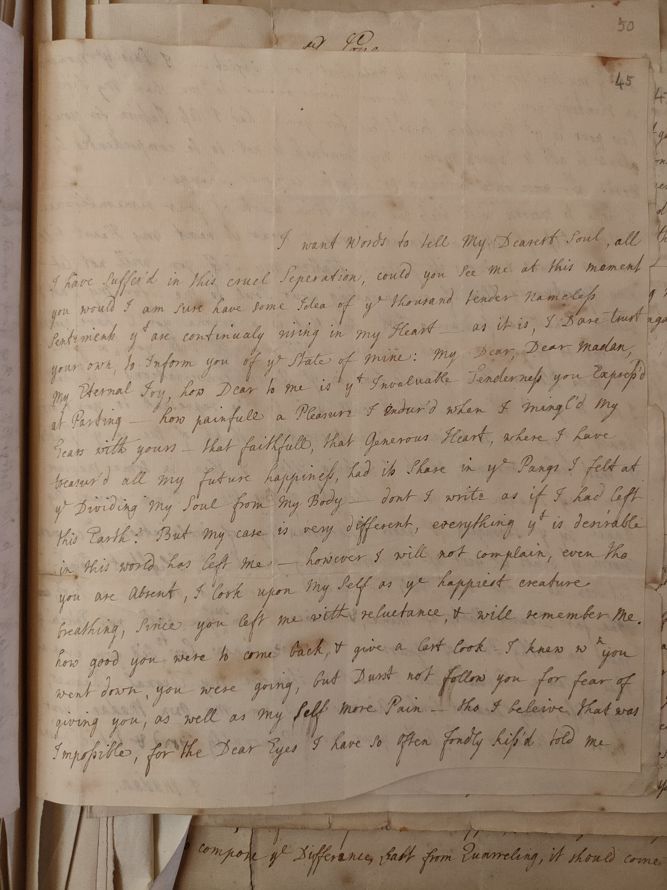 50
45
I want Words to tell My Dearest Soul, all
I have Suffer'd in this cruel Seperation, could you See me at this moment
you would I am Sure have Some Idea of ye thousand tender nameless
Sentiments yt are continualy rising in my Heart — as it is, I Dare trust
your own, to Inform you of ye State of mine: My Dear, Dear Madan,
my Eternal Joy, how Dear to me is yt Invaluable Tenderness you Express'd
at Parting — how painfull a Pleasure I Indur'd when I mingl'd My
Tears with yours — that faithfull, that Generous Heart, where I have
treasur'd all my future happiness, had its Share in ye Pangs I felt at
ye Dividing My Soul from My Body — dont I write as if I had left
this Earth? But my case is very different, everything yt is desirable
in this world has left me — however I will not complain, even tho
you are Absent, I look upon My Self as ye happiest creature
breathing, Since you left me with reluctance, & will remember Me.
how good you were to come back, & give a last look - I knew wn you
went down, you were going, but Durst not follow you for fear of
giving you, as well as My Self More Pain — tho I beleive that was
Impossible, for the Dear Eyes I have So often fondly kiss'd told me
compose ye Difference, Last from Quarreling, it should come